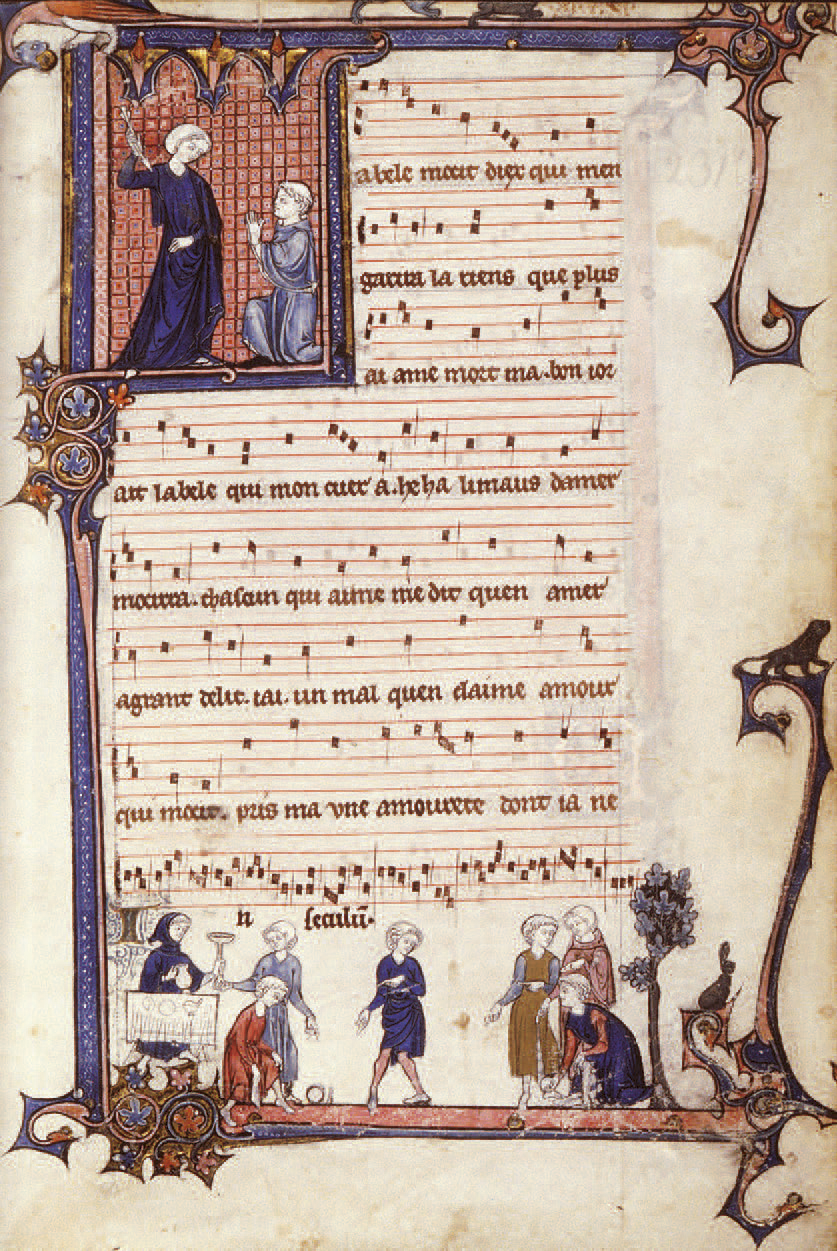 abele mocit diex qui men
garira la riens que plus
ai ame mort ma.bon ior
ait labele qui mon cuer a.he ha li maus damer
mocirra.chascun qui aime me dit quen amer
agrant delit.iai.un mal quen claime amour
qui mocit. pris ma vne amourete dont ia ne
I n seculū.